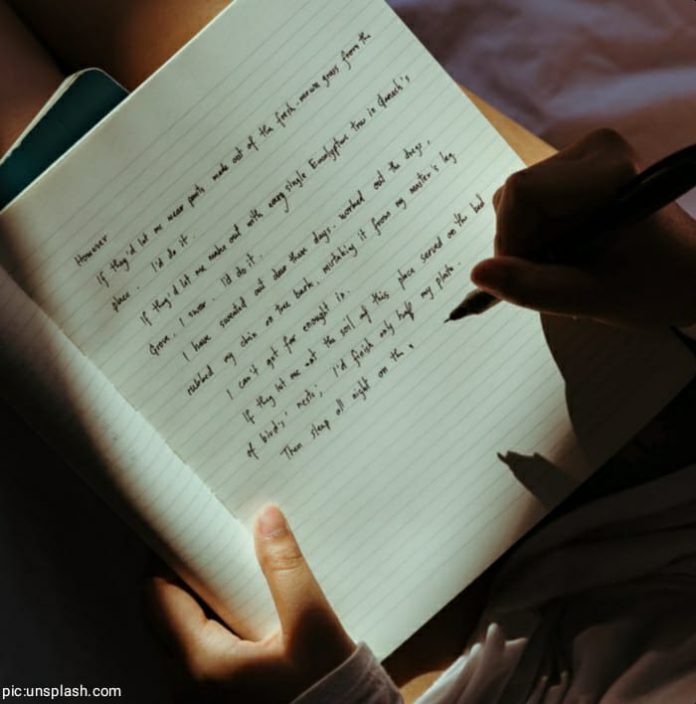 However
If they'd let me wear pants made out of the fresh-mown grass from the
place, I'd do it.
If they'd let me make out with every single Eucalyptus tree in Queech's
Grove, I swear, I'd do it.
I have sweated out dew these days, worked out the dregs,
rubbed my chin on tree bark, mistaking it from my master's leg
I can't get far enough in.
If they let me eat the soil of this place served on the bed
of birds' nests, I'd finish only half my plate.
Then sleep all night on the
pic:unsplash.com